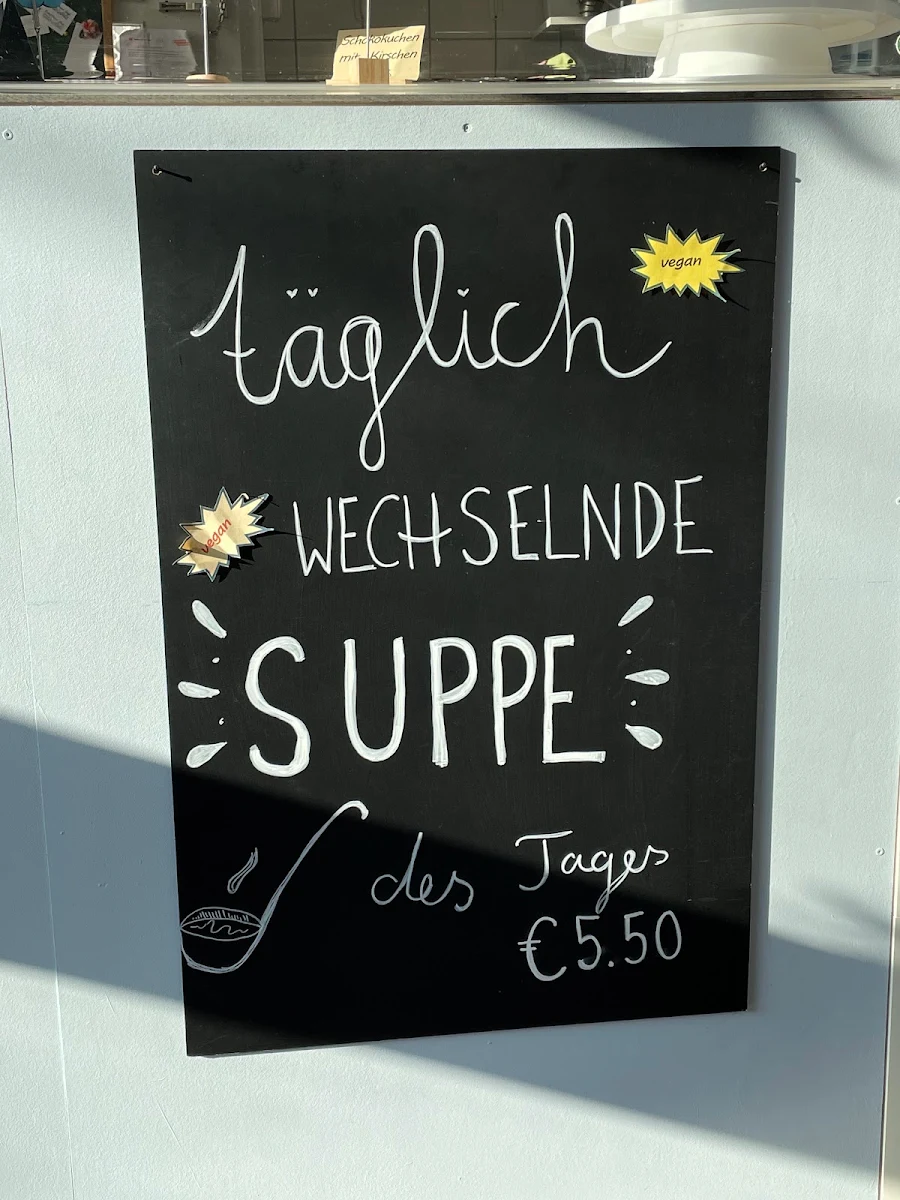 Schokokuchen
mit Kirschen
täglich
vegan
vegan
WECHSELNDE
SUPPE
des Tages
€5.50